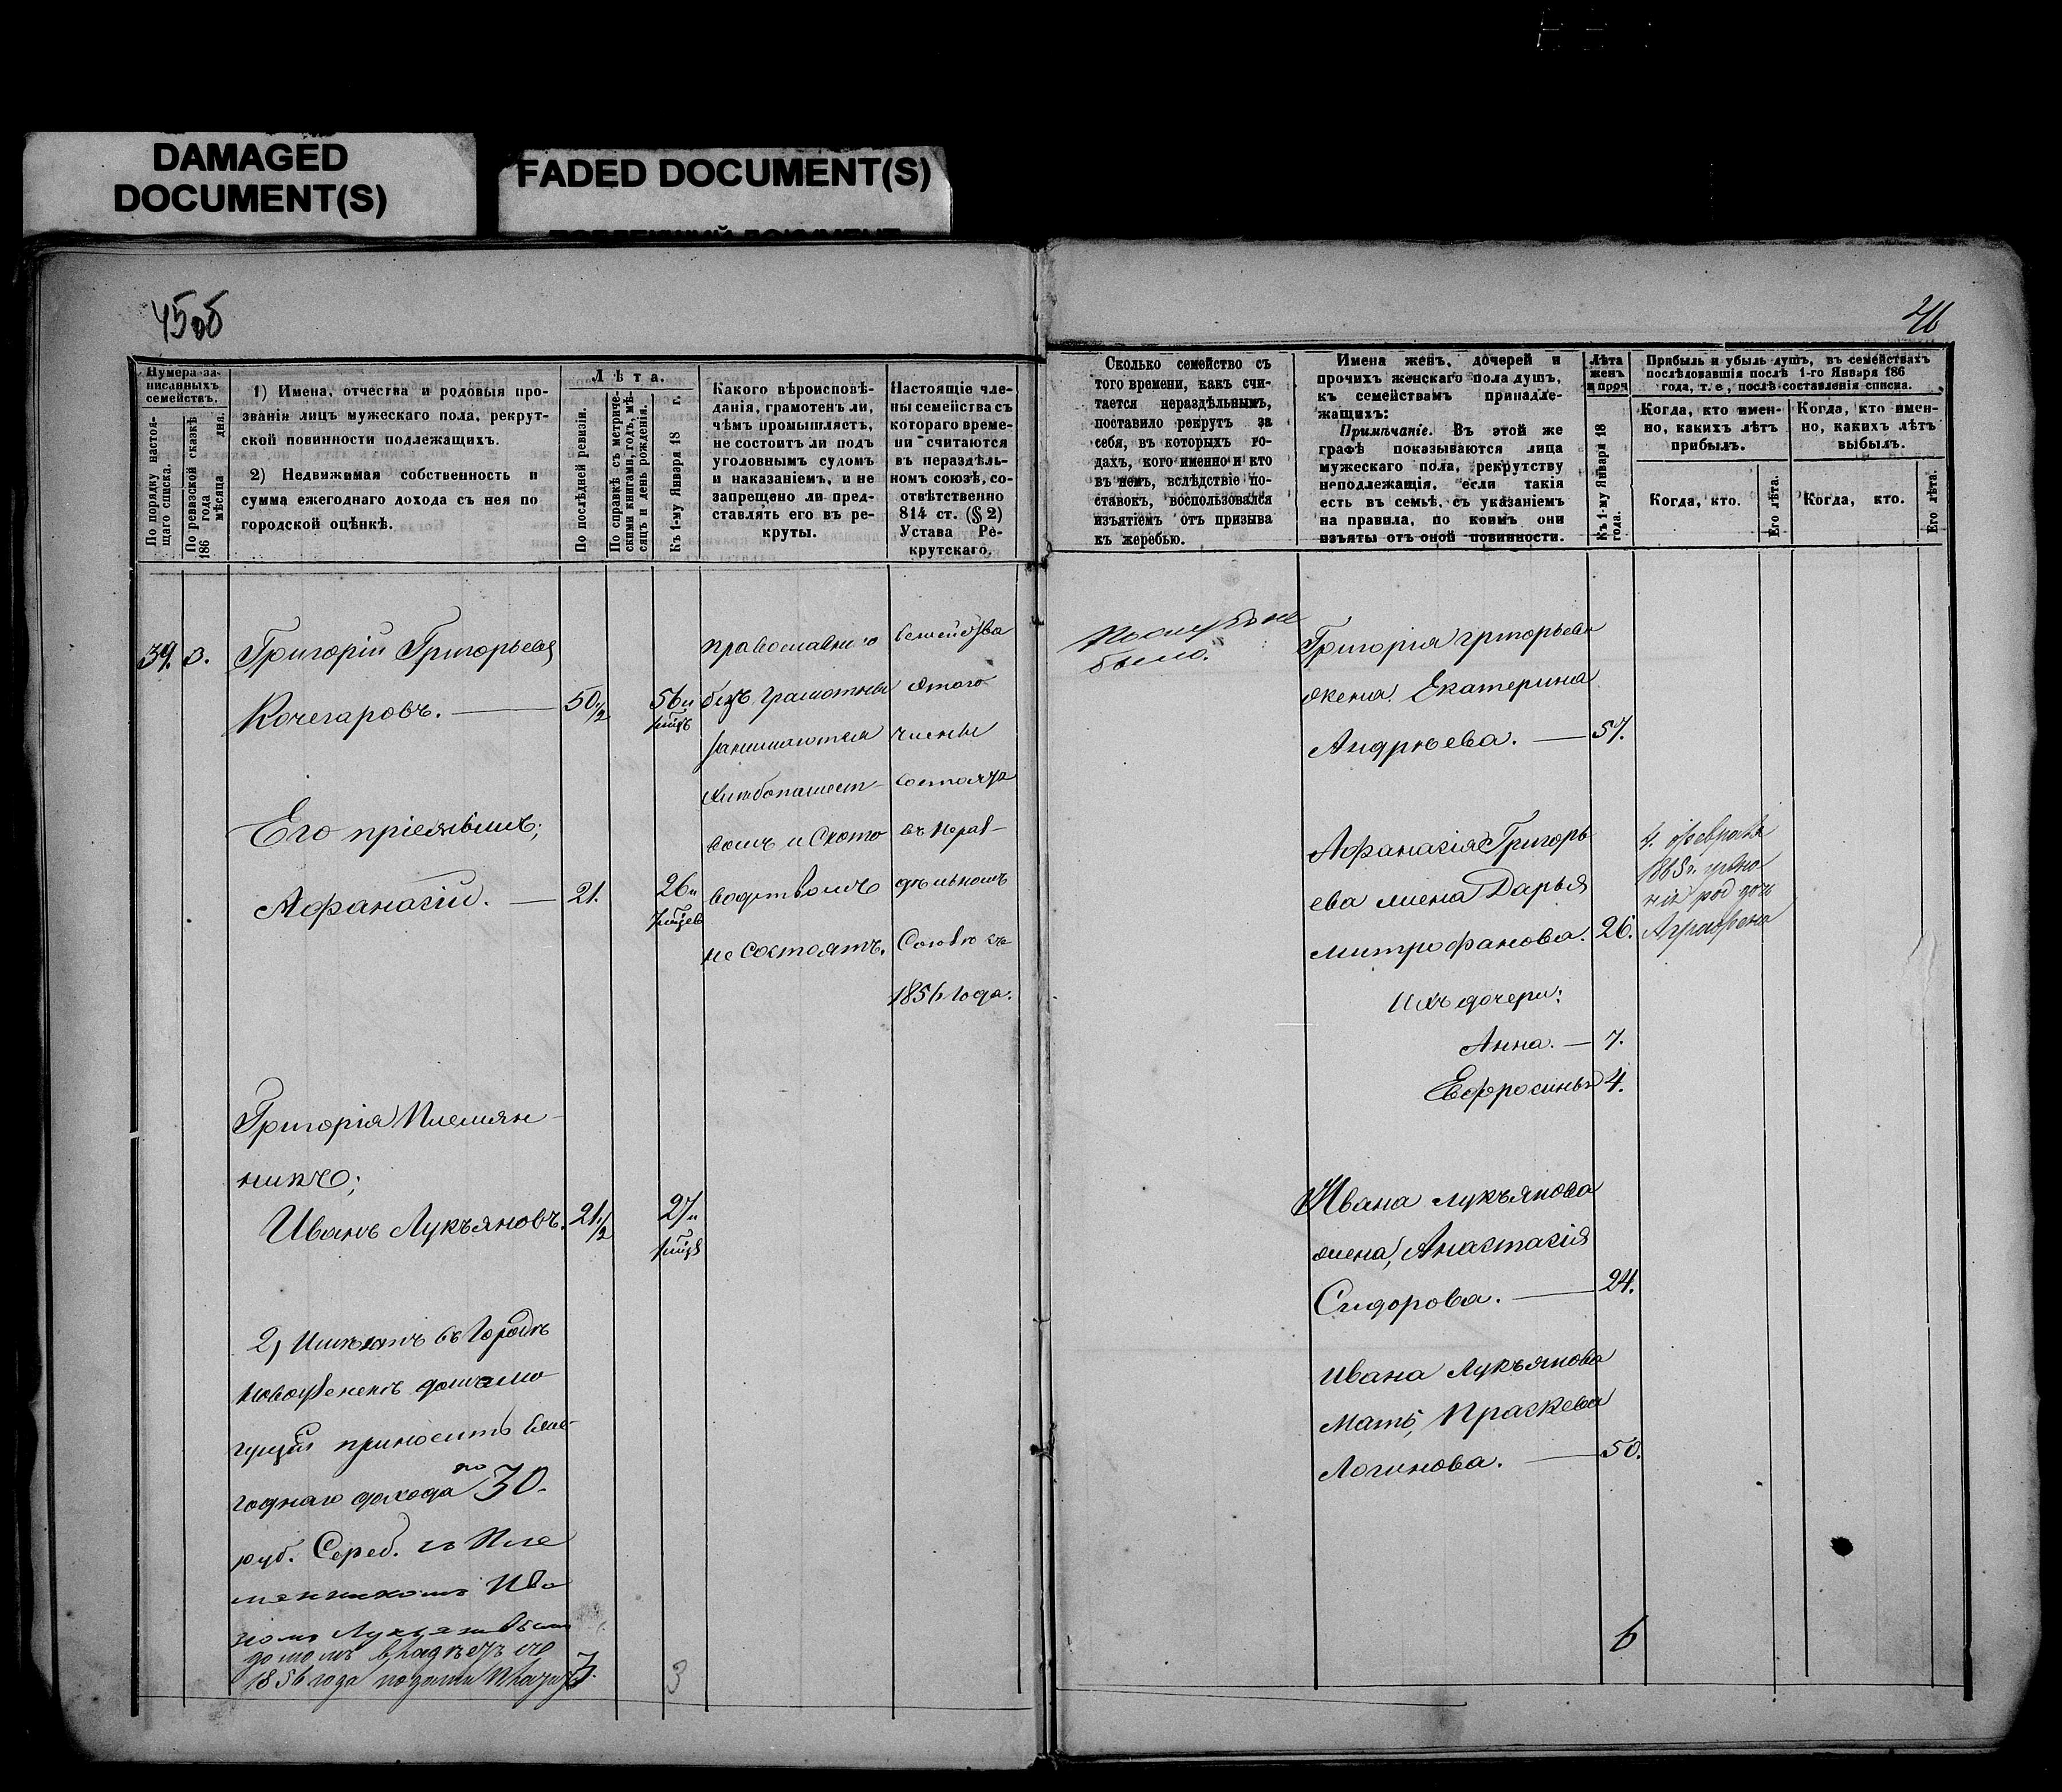 DAMAGED
DOCUMENT(S)
FADED DOCUMENT(S)
45об
Нумера за-
писанныхъ
семействъ.
По порядку настоя-
щаго списка.
По ревизской сказкѣ
186 года
мѣсяца дня.
1) Имена, отчества и родовыя про-
званія лицъ мужескаго пола, рекрут-
ской повинности подлежащихъ.
2) Недвижимая собственность и
сумма ежегоднаго дохода съ нея по
городской оцѣнкѣ.
Лѣта.
По послѣдней ревизіи.
По справкѣ съ метриче-
скими книгами, годъ, мѣ-
сяцъ и день рожденія.
Къ 1-му Января 18 г.
Какого вѣроисповѣ-
данія, грамотенъ ли,
чѣмъ промышляетъ,
не состоитъ ли подъ
уголовнымъ судомъ
и наказаніемъ, и не
запрещено ли пред-
ставлять его въ ре-
круты.
Настоящіе чле-
ны семейства съ
котораго време-
ни считаются
въ нераздѣль-
номъ союзѣ, со-
отвѣтственно
814 ст. (§ 2)
Устава Ре-
крутскаго.
39. 3.
Григорій Григорьевъ
Кочегаровъ. — 50 1/2
56 и
1 мѣц
Его пріемышъ;
Афанасій. — 21.
26 и
7 мѣцев
Григорія Племян-
никъ;
Иванъ Лукъяновъ. 21 1/2
27 и
1 мѣц
2, Имѣютъ въ Городѣ
Новоузенскѣ домъ
приносить еже-
годнаго дохода до 30
руб. Сереб. съ Пле
менникомъ Ива
номъ
домомъ владѣетъ съ
1856 года
3.
3
православнаго
безъ грамотны
занимаются
хлѣбопашест-
вомъ и Ското
водствомъ
не состоятъ.
Семейства
этого
члены
состоятъ
въ Нераз-
дѣльномъ
Союзѣ съ
1856 года.
26
Сколько семейство съ
того времени, какъ счи-
тается нераздѣльнымъ,
поставило рекрутъ за
себя, въ которыхъ го-
дахъ, кого именно и кто
въ немъ, вслѣдствіе по-
ставокъ, воспользовался
изъятіемъ отъ призыва
къ жеребью.
Имена женъ, дочерей и
прочихъ женскаго пола душъ,
къ семействамъ принадле-
жащихъ:
Примѣчаніе. Въ этой же
графѣ показываются лица
мужескаго пола, рекрутству
неподлежащія, если такія
есть въ семьѣ, съ указаніемъ
на правила, по коимъ они
изъяты отъ оной повинности.
Лѣта
женъ
и проч
Къ 1-му Января 18
года.
Прибыль и убыль душъ, въ семействахъ
послѣдовавшія послѣ 1-го Января 186
года, т. е., послѣ составленія списка.
Когда, кто имен-
но, какихъ лѣтъ
прибылъ.
Когда, кто имен-
но, какихъ лѣтъ
выбылъ.
Когда, кто.
Его лѣта.
Когда, кто.
Его лѣта.
не
было.
Григорія Григорьева
жена Екатерина
Андрѣева. — 57.
Афанасія Григорь
ева жена Дарья
Митрофанова. 26.
Ихъ дочери:
Анна. — 7.
Евфросинья 4.
Ивана Лукъянова
жена, Анастасія
Сидорова. — 24.
Ивана Лукъянова
Мать, Праскева
Логинова. — 50.
6
4. февраля
род дочь
Аграфена